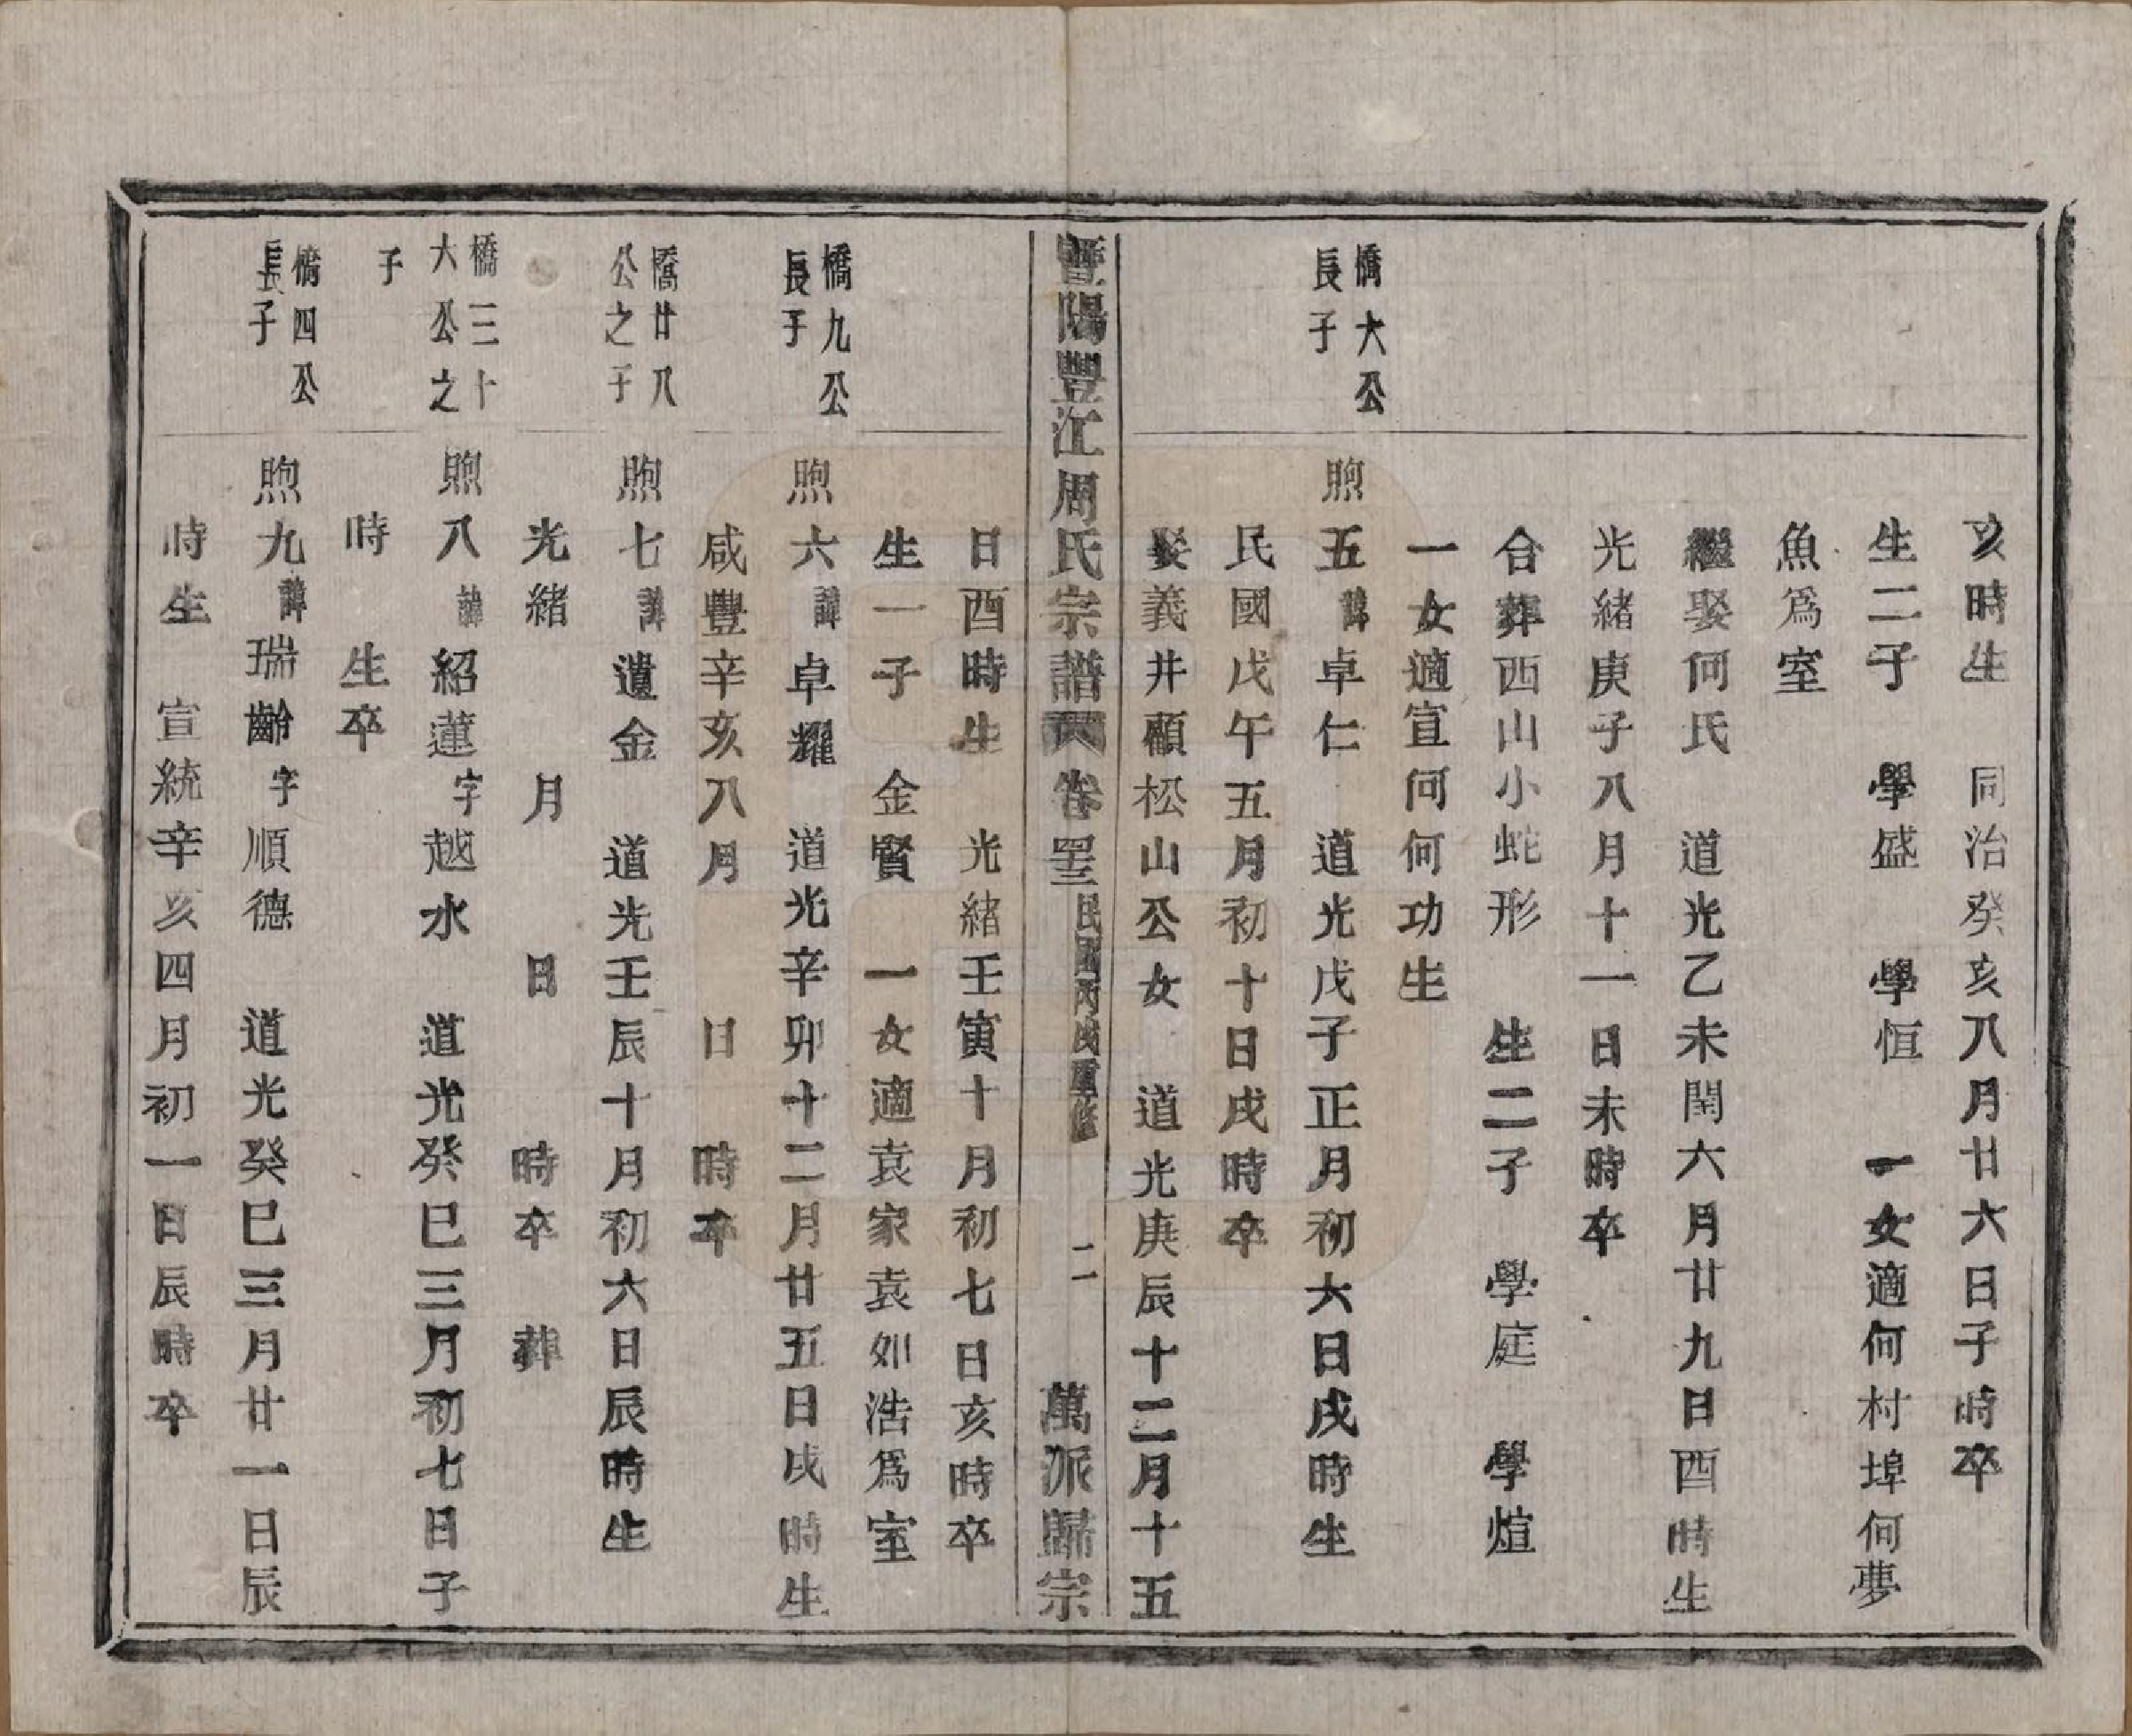 亥時生　同治癸亥八月廿六日子時卒
生二子　學盛　學恒　一女適何村埠何夢
魚爲室
繼娶何氏　道光乙未閏六月廿九日酉時生
光緒庚子八月十一日未時卒
合葬西山小蛇形　生二子　學庭　學煊
一女適宣何何功生
橋大公
長子
煦五諱卓仁　道光戊子正月初六日戌時生
民國戊午五月初十日戌時卒
娶義井顧松山公女　道光庚辰十二月十五
暨陽豐江周氏宗譜 卷 民國丙戌重修　二　萬派歸宗
日酉時生　光緒壬寅十月初七日亥時卒
生一子　金賢　一女適袁家袁如浩爲室
橋九公
長子
煦六諱卓耀　道光辛卯十二月廿五日戌時生
咸豐辛亥八月　日　時卒
橋廿八
公之子
煦七諱遺金　道光壬辰十月初六日辰時生
光緒　月　日　時卒　葬
橋三十
大公之
子
煦八諱紹蓮字越水　道光癸巳三月初七日子
時　生卒
脩四公
長子
煦九諱瑞齡字順德　道光癸巳三月廿一日辰
時生　宣統辛亥四月初一日辰時卒